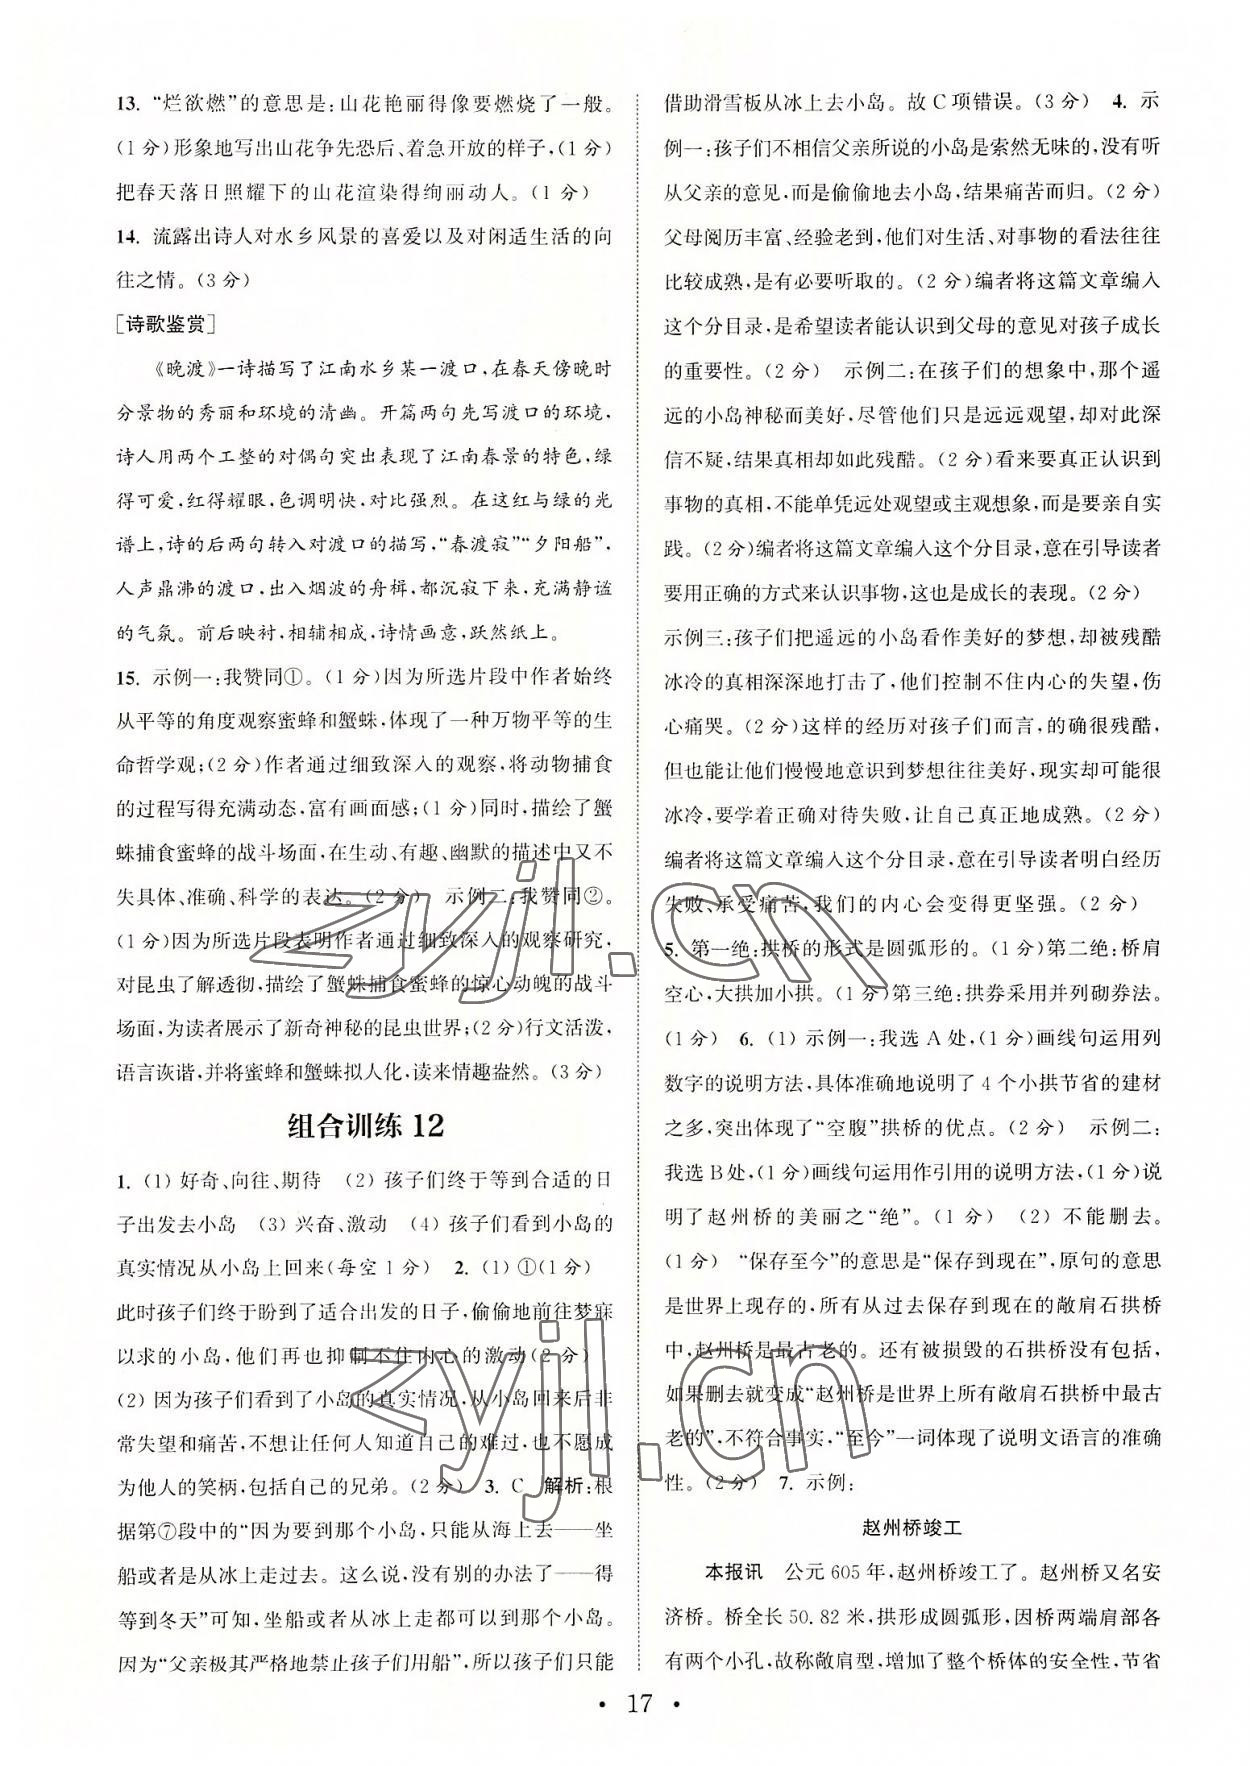 13. “烂欲燃”的意思是:山花艳丽得像要燃烧了一般。
(1分)形象地写出山花争先恐后、着急开放的样子,(1分)
把春天落日照耀下的山花渲染得绚丽动人。(1分)
14. 流露出诗人对水乡风景的喜爱以及对闲适生活的向
往之情。(3分)
[诗歌鉴赏]
《晚渡》一诗描写了江南水乡某一渡口,在春天傍晚时
分景物的秀丽和环境的清幽。开篇两句先写渡口的环境,
诗人用两个工整的对偶句突出表现了江南春景的特色,绿
得可爱,红得耀眼,色调明快,对比强烈。在这红与绿的光
谱上,诗的后两句转入对渡口的描写,“春渡寂”“夕阳船”,
人声鼎沸的渡口,出入烟波的舟楫,都沉寂下来,充满静谧
的气氛。前后映衬,相辅相成,诗情画意,跃然纸上。
15. 示例一:我赞同①。(1分)因为所选片段中作者始终
从平等的角度观察蜜蜂和蟹蛛,体现了一种万物平等的生
命哲学观;(2分)作者通过细致深入的观察,将动物捕食
的过程写得充满动态,富有画面感;(1分)同时,描绘了蟹
蛛捕食蜜蜂的战斗场面,在生动、有趣、幽默的描述中又不
失具体、准确、科学的表达。(2分) 示例二:我赞同②。
(1分)因为所选片段表明作者通过细致深入的观察研究,
对昆虫了解透彻,描绘了蟹蛛捕食蜜蜂的惊心动魄的战斗
场面,为读者展示了新奇神秘的昆虫世界;(2分)行文活泼,
语言诙谐,并将蜜蜂和蟹蛛拟人化,读来情趣盎然。(3分)
组合训练12
1. (1) 好奇、向往、期待 (2) 孩子们终于等到合适的日
子出发去小岛 (3) 兴奋、激动 (4) 孩子们看到小岛的
真实情况从小岛上回来(每空1分) 2. (1) ①(1分)
此时孩子们终于盼到了适合出发的日子,偷偷地前往梦寐
以求的小岛,他们再也抑制不住内心的激动(2分)
(2) 因为孩子们看到了小岛的真实情况,从小岛回来后非
常失望和痛苦,不想让任何人知道自己的难过,也不愿成
为他人的笑柄,包括自己的兄弟。(2分) 3. C 解析:根
据第⑦段中的“因为要到那个小岛,只能从海上去——坐
船或者是从冰上走过去。这么说,没有别的办法了——得
等到冬天”可知,坐船或者从冰上走都可以到那个小岛。
因为“父亲极其严格地禁止孩子们用船”,所以孩子们只能
借助滑雪板从冰上去小岛。故C项错误。(3分) 4. 示
例一:孩子们不相信父亲所说的小岛是索然无味的,没有听
从父亲的意见,而是偷偷地去小岛,结果痛苦而归。(2分)
父母阅历丰富、经验老到,他们对生活、对事物的看法往往
比较成熟,是有必要听取的。(2分)编者将这篇文章编入
这个分目录,是希望读者能认识到父母的意见对孩子成长
的重要性。(2分) 示例二:在孩子们的想象中,那个遥
远的小岛神秘而美好,尽管他们只是远远观望,却对此深
信不疑,结果真相却如此残酷。(2分)看来要真正认识到
事物的真相,不能单凭远处观望或主观想象,而是要亲自实
践。(2分)编者将这篇文章编入这个分目录,意在引导读者
要用正确的方式来认识事物,这也是成长的表现。(2分)
示例三:孩子们把遥远的小岛看作美好的梦想,却被残酷
冰冷的真相深深地打击了,他们控制不住内心的失望,伤
心痛哭。(2分)这样的经历对孩子们而言,的确很残酷,
但也能让他们慢慢地意识到梦想往往美好,现实却可能很
冰冷,要学着正确对待失败,让自己真正地成熟。(2分)
编者将这篇文章编入这个分目录,意在引导读者明白经历
失败、承受痛苦,我们的内心会变得更坚强。(2分)
5. 第一绝:拱桥的形式是圆弧形的。(1分)第二绝:桥肩
空心,大拱加小拱。(1分)第三绝:拱券采用并列砌券法。
(1分) 6. (1) 示例一:我选A处,(1分)画线句运用列
数字的说明方法,具体准确地说明了4个小拱节省的建材
之多,突出体现了“空腹”拱桥的优点。(2分) 示例二:
我选B处,(1分)画线句运用作引用的说明方法,(1分)说
明了赵州桥的美丽之“绝”。(1分) (2) 不能删去。
(1分) “保存至今”的意思是“保存到现在”,原句的意思
是世界上现存的,所有从过去保存到现在的敞肩石拱桥
中,赵州桥是最古老的。还有被损毁的石拱桥没有包括,
如果删去就变成“赵州桥是世界上所有敞肩石拱桥中最古
老的”,不符合事实,“至今”一词体现了说明文语言的准确
性。(2分) 7. 示例:
赵州桥竣工
本报讯 公元605年,赵州桥竣工了。赵州桥又名安
济桥。桥全长50.82米,拱形成圆弧形,因桥两端肩部各
有两个小孔,故称敞肩型,增加了整个桥体的安全性,节省
• 17 •
zyjl.cn
zyjl.cn